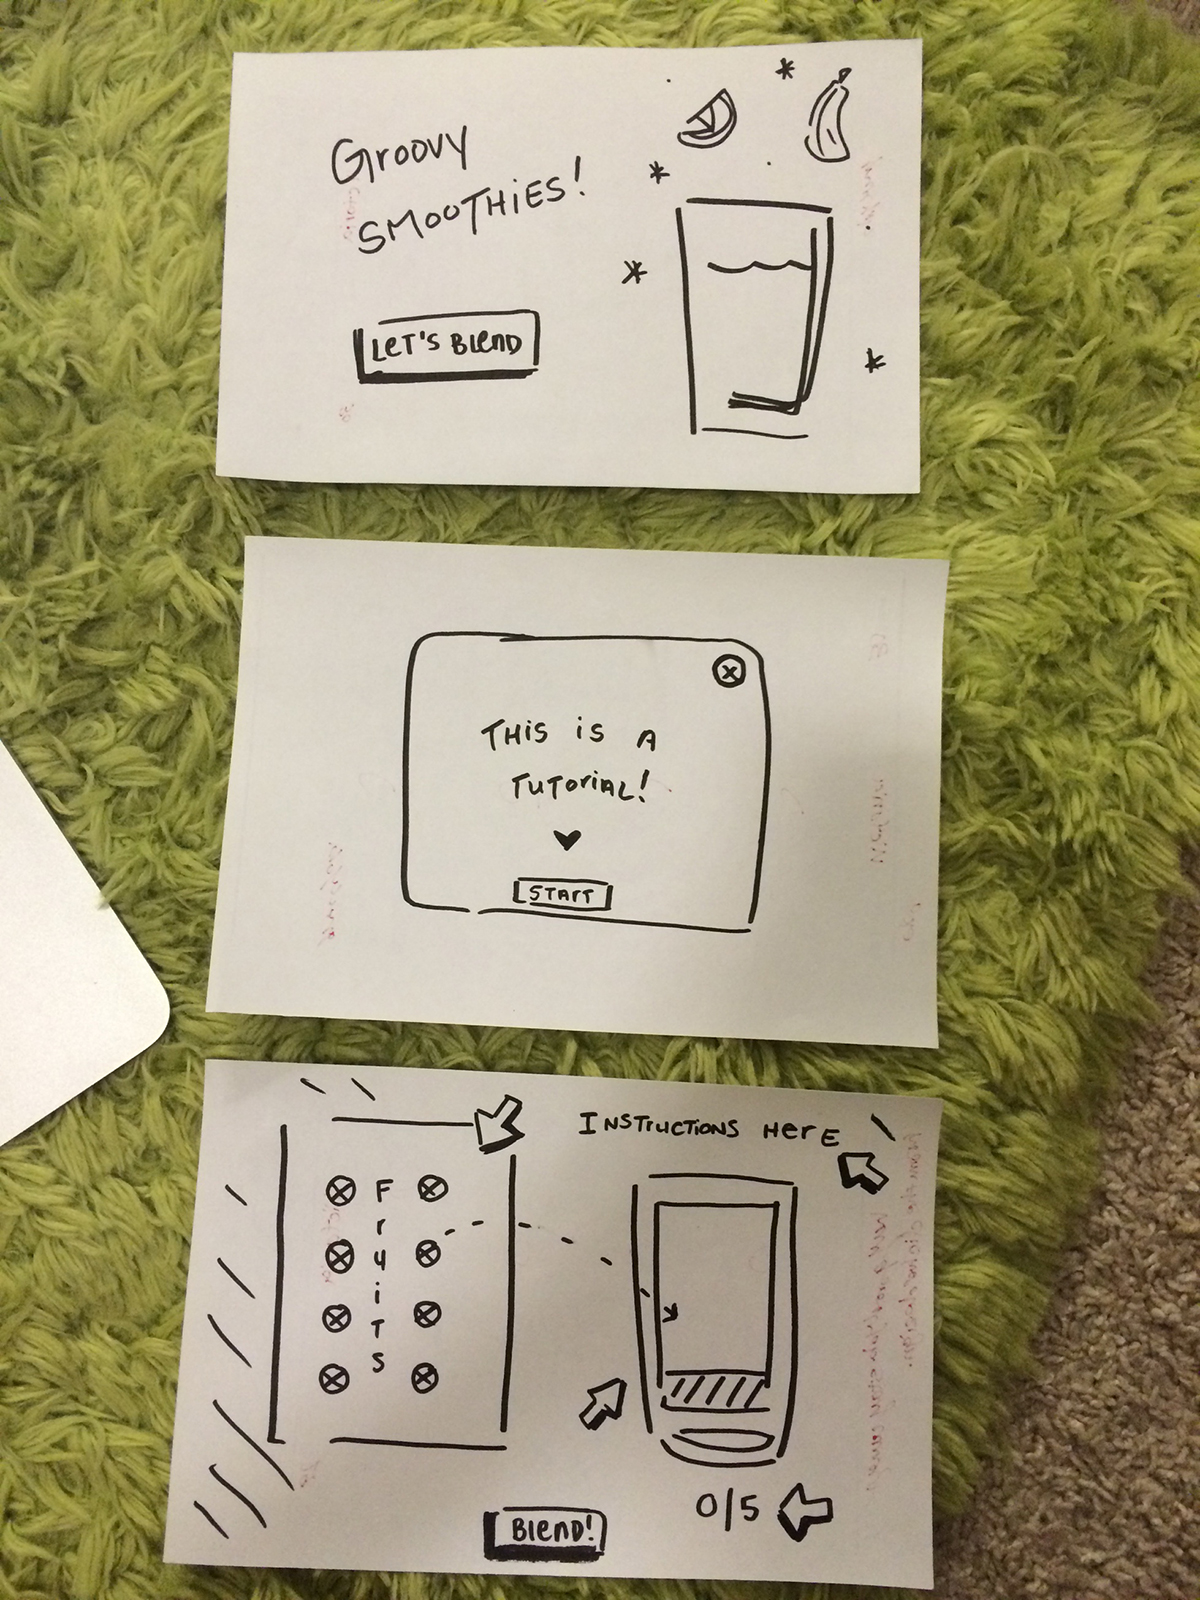 Groovy
SMOOTHiES!
LET'S BLEND
THIS iS A
TUTORIAL!
START
INSTRUCTIONS HERE
FruiTS
0/5
BLEND!